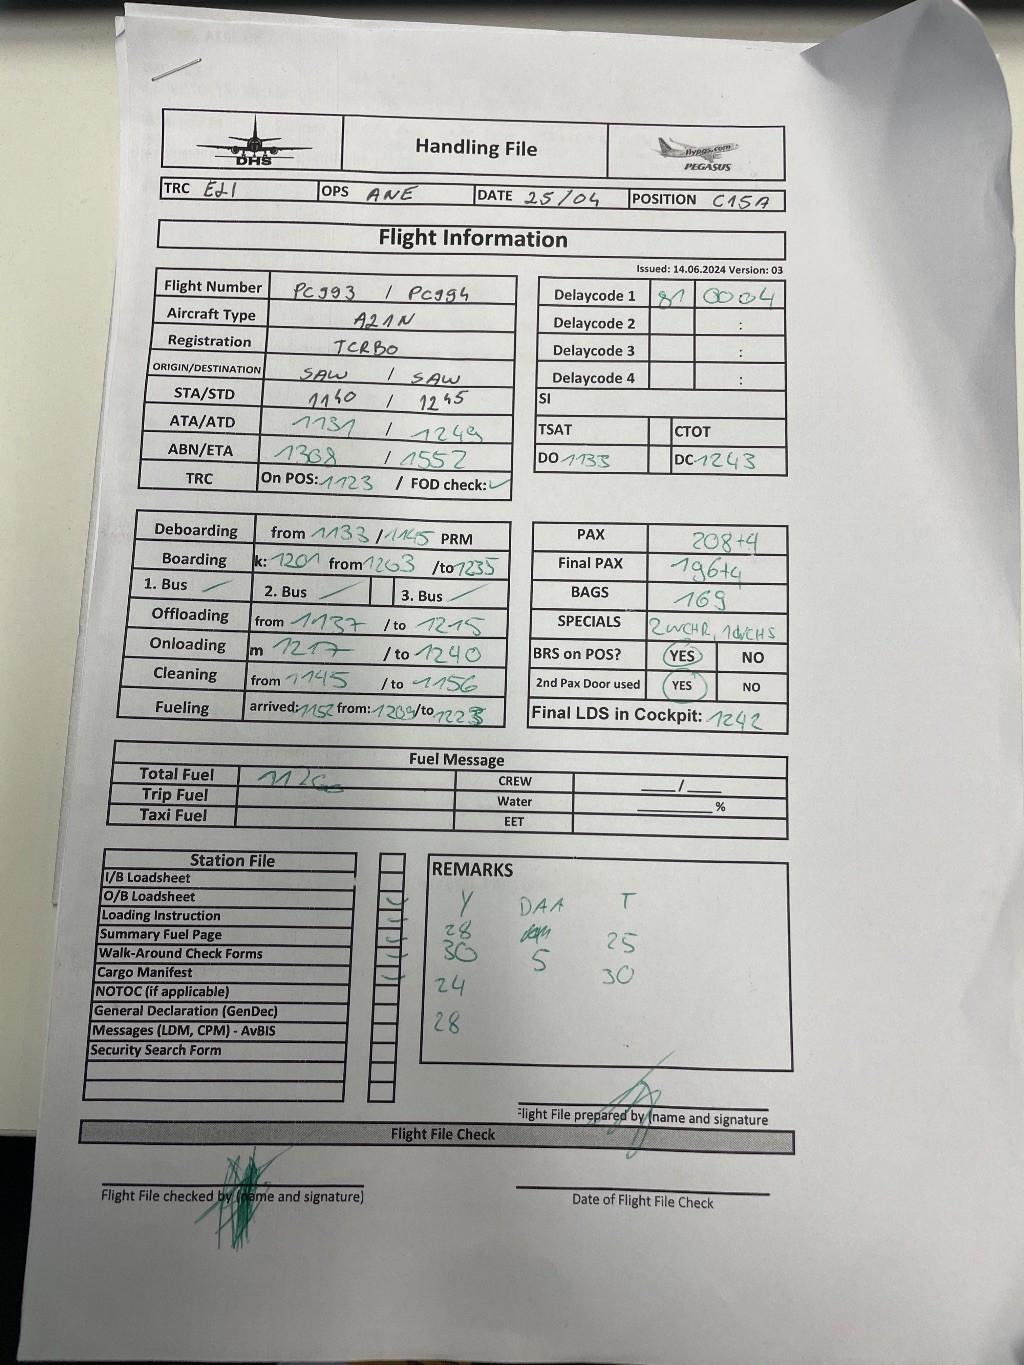 DHS
Handling File
flypgs.com
PEGASUS
TRC ELI OPS ANE DATE 25/04 POSITION C15A
Flight Information
Issued: 14.06.2024 Version: 03
Flight Number PC993 / PC994
Aircraft Type A21N
Registration TCRBO
ORIGIN/DESTINATION SAW / SAW
STA/STD 1140 / 1245
ATA/ATD 1131 / 1249
ABN/ETA 1308 / 1552
TRC On POS: 1123 / FOD check: ✓
Delaycode 1 81 0004
Delaycode 2 :
Delaycode 3 :
Delaycode 4 :
SI
TSAT CTOT
DO 1133 DC 1243
Deboarding from 1133 / 1145 PRM
Boarding k: 1201 from 1203 /to 1235
1. Bus 2. Bus 3. Bus
Offloading from 1137 / to 1215
Onloading m 1217 / to 1240
Cleaning from 1145 / to 1156
Fueling arrived: 1152 from: 1209 /to 1223
PAX 208+4
Final PAX 196+4
BAGS 169
SPECIALS 2WCHR, 1WCHS
BRS on POS? YES NO
2nd Pax Door used YES NO
Final LDS in Cockpit: 1242
Fuel Message
Total Fuel CREW ___/___
Trip Fuel Water ______%
Taxi Fuel EET
Station File
I/B Loadsheet
O/B Loadsheet
Loading Instruction
Summary Fuel Page
Walk-Around Check Forms
Cargo Manifest
NOTOC (if applicable)
General Declaration (GenDec)
Messages (LDM, CPM) - AvBIS
Security Search Form
REMARKS
Y DAA T
28 25
30 5 30
24
28
Flight File prepared by (name and signature
Flight File Check
Flight File checked by (name and signature)
Date of Flight File Check